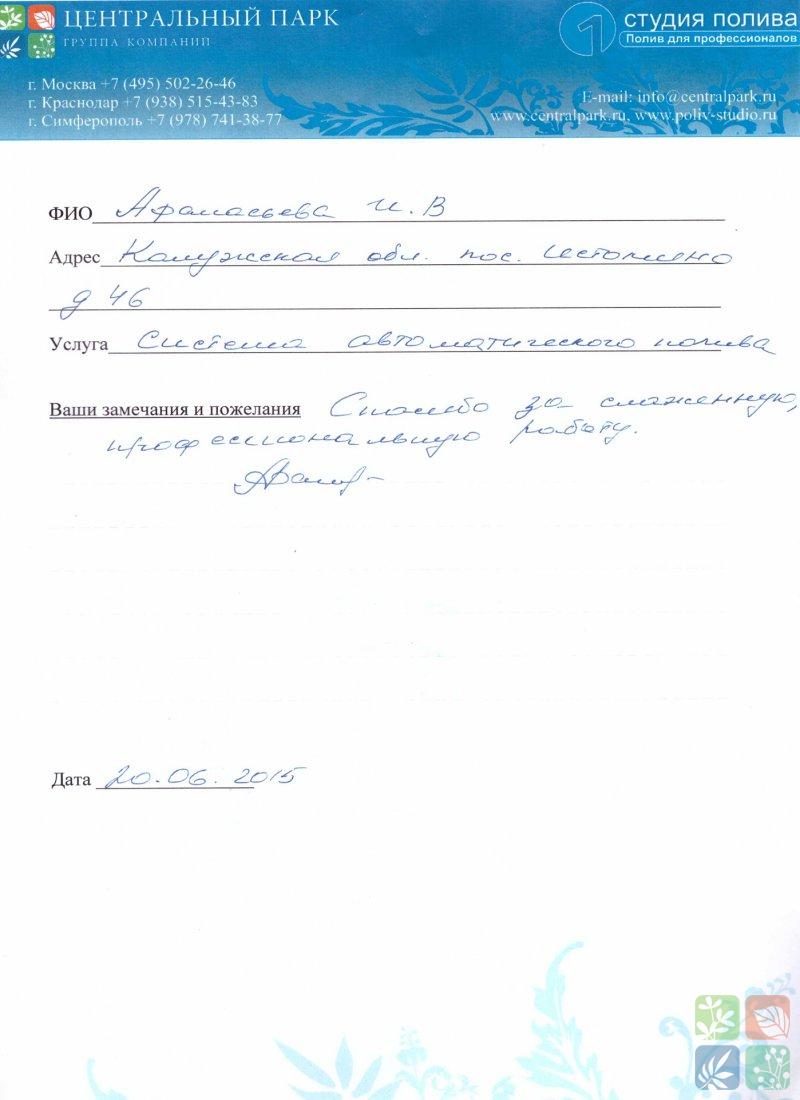 ЦЕНТРАЛЬНЫЙ ПАРК
ГРУППА КОМПАНИЙ
г. Москва +7 (495) 502-26-46
г. Краснодар +7 (938) 515-43-83
г. Симферополь +7 (978) 741-38-77
1 студия полива
Полив для профессионалов
E-mail: info@centralpark.ru
www.centralpark.ru, www.poliv-studio.ru
ФИО Афанасьева И.В
Адрес Калужская обл. пос.
д 46
Услуга Система автоматического полива
Ваши замечания и пожелания Спасибо за слаженную,
профессиональную работу.
Дата 20.06.2015